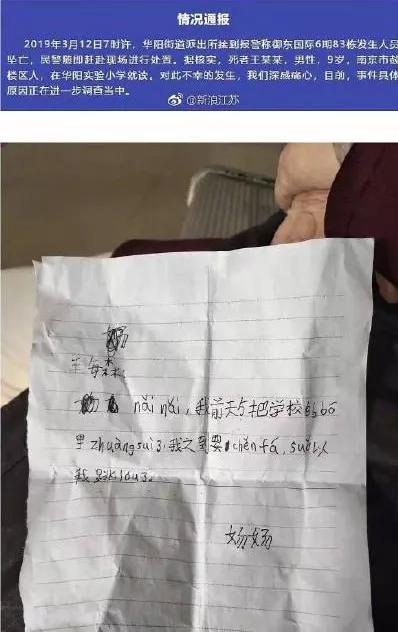 情况通报
2019年3月12日7时许，华阳街道派出所接到报警称御东国际6期83栋发生人员
坠亡，民警随即赶赴现场进行处置。据核实，死者王某某，男性，9岁，南京市鼓
楼区人，在华阳实验小学就读。对此不幸的发生，我们深感痛心，目前，事件具体
原因正在进一步调查当中。
@新浪江苏
nǎi nǎi，我前天把学校的bō
里zhuàng sui了，我之到要chěn fá，suǒ以
我跳lóu了。